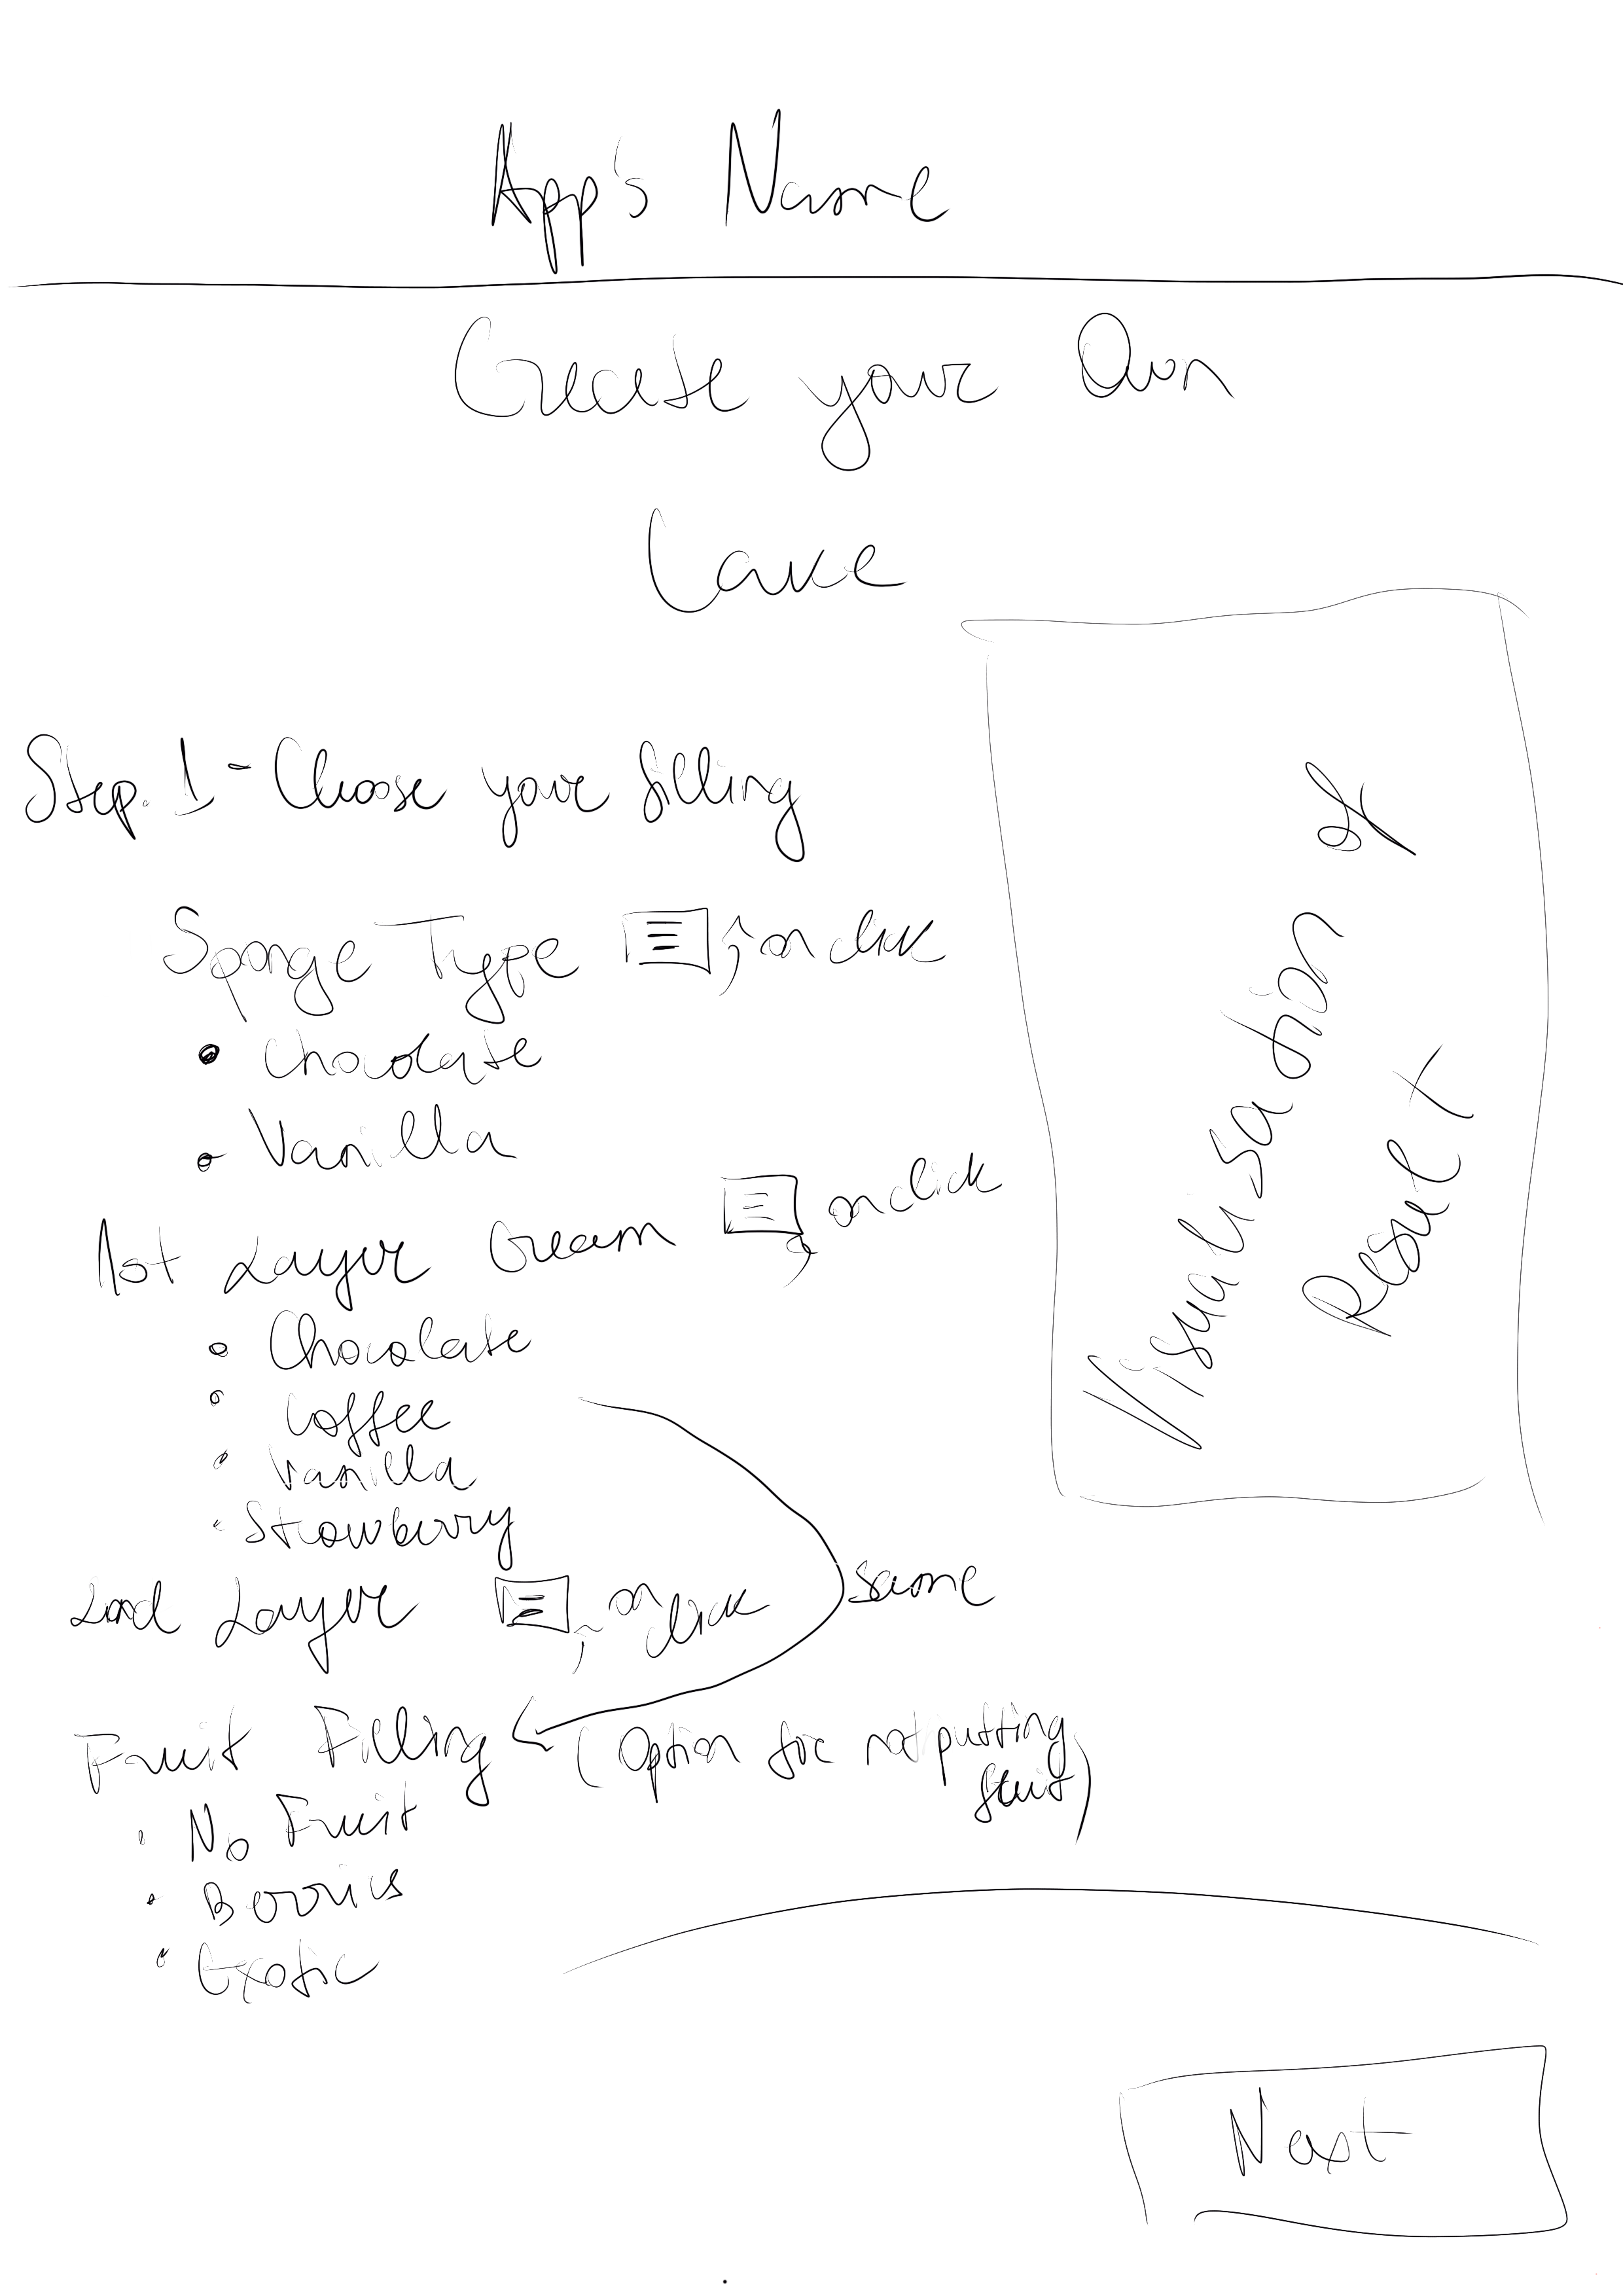 App's Name
Create your Own
Cake
Step. 1 - Choose your filling
Sponge Type ; on click
• Chocolate
• Vanilla
1st Layer Cream ; on click
• Chocolate
• Coffee
• Vanilla
• Strawberry
2nd Layer ; on click
same
Fruit Filling (Option for not putting
fruit)
• No Fruit
• Berries
• Exotic
Visualisation of
Result
Next